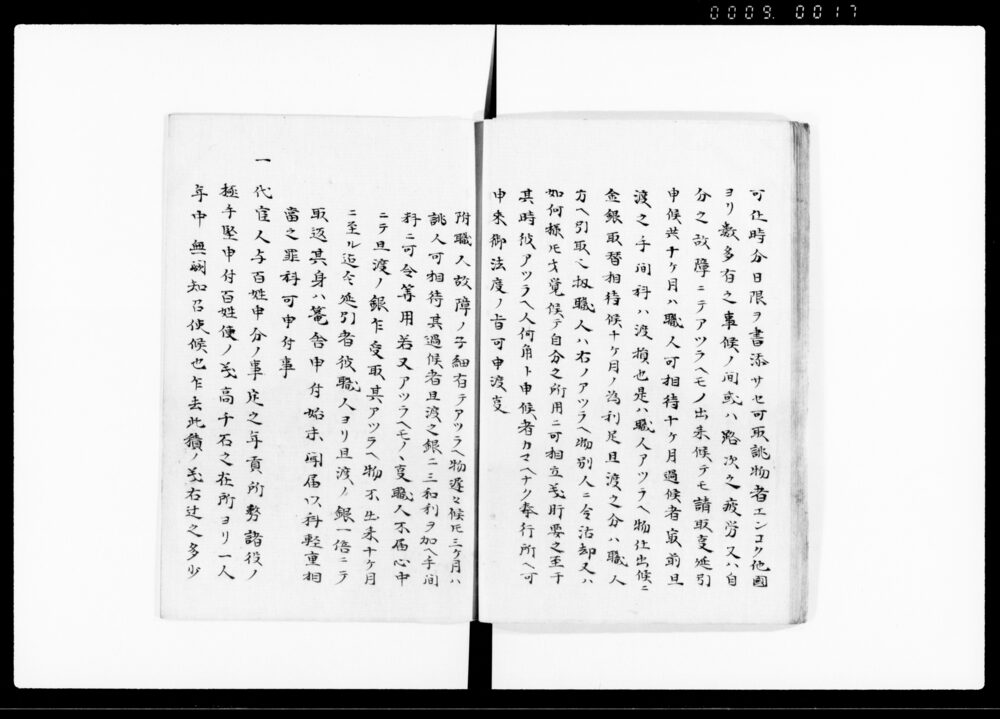 0009. 0017
可仕時分日限ヲ書添サセ可取誂物者エンコク他國
ヨリ数多有之事候ノ間或ハ路次之疲労又ハ自
分之故障ニテアツラヘモノ出来候テモ請取変延引
申候共十ケ月ハ職人可相待十ケ月過候者最前旦
渡之手間科ハ渡損也是ハ職人アツラヘ物仕出候ニ
金銀取替相待候十ケ月ノ為利足旦渡之分ハ職人
方ヘ引取之扨職人ハ右ノアツラヘ物別人ニ令沽却又ハ
如何様ニ才覚候テ自分之所用ニ可相立義肝要之至于
其時彼アツラヘ人何角ト申候者カマヘナク奉行所ヘ可
申来御法度ノ旨可申渡变
附職人故障ノ子細有テアツラヘ物遅々候ㇳモ三ケ月ハ
誂人可相待其過候者旦渡之銀ニ三和利ヲ加ヘ手間
科ニ可令算用若又アツラヘモノヽ变職人不届心中
ニテ旦渡ノ銀乍受取其アツラヘ物不出来十ケ月
ニ至ル迄令延引者彼職人ヨリ旦渡ノ銀一倍ニテ
取返其身ハ篭舎申付始末聞届以科軽重相
當之罪科可申付事
一 代官人与百姓申分ノ事定之年貢所務諸役ノ
極手堅申付百姓使ノ義高千石之在所ヨリ一人
年中無嗣知召使候也乍去此積ノ義右辻之多少